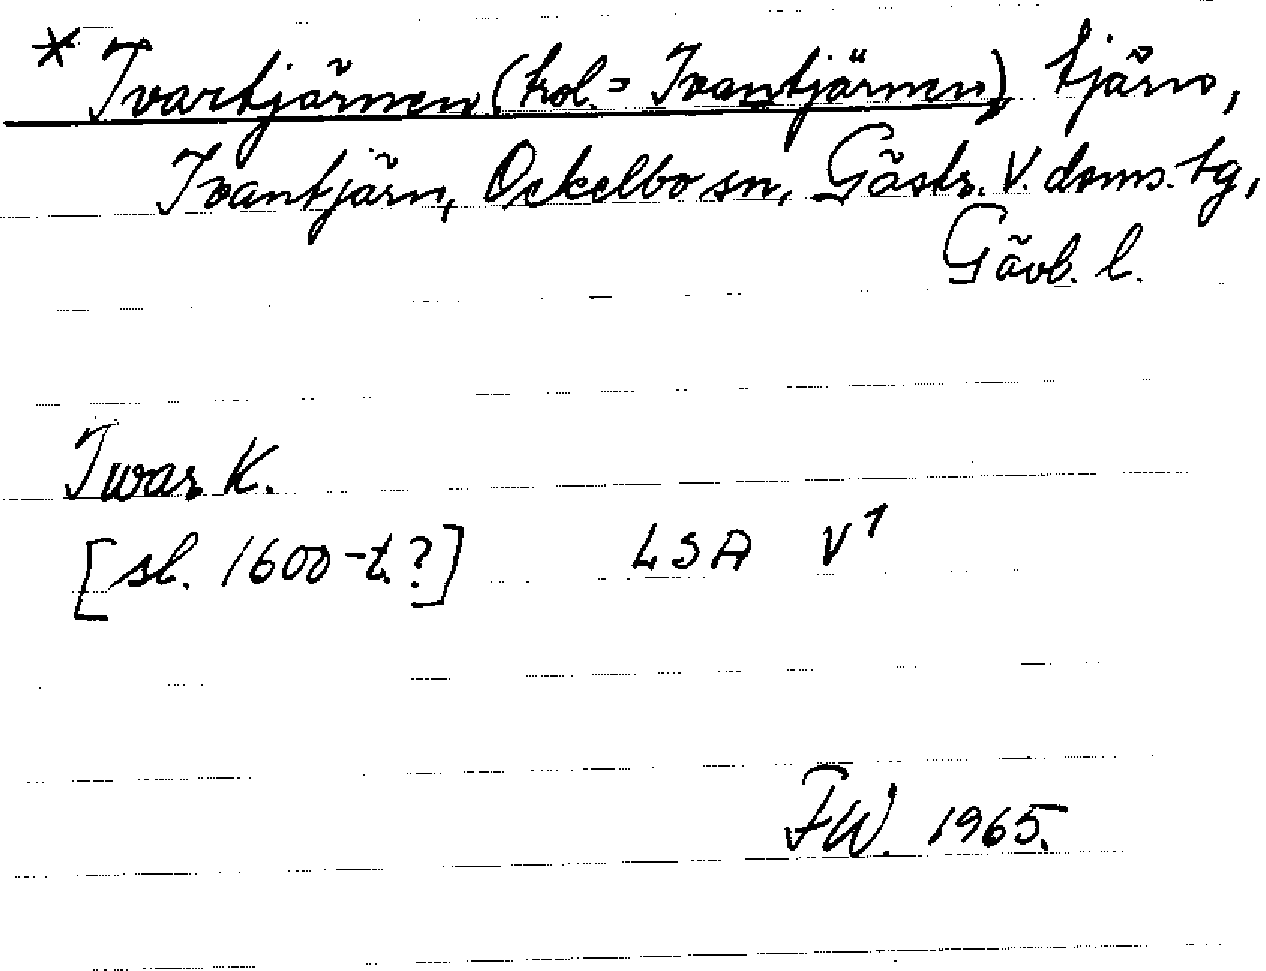 * Ivartjärnen (trol. = Ivantjärnen), tjärn,
Ivantjärn, Ockelbo sn, Gästr. V. doms. tg,
Gävb. l.
Iwar K.
[sl. 1600-t.?] LSA V1
FW. 1965.